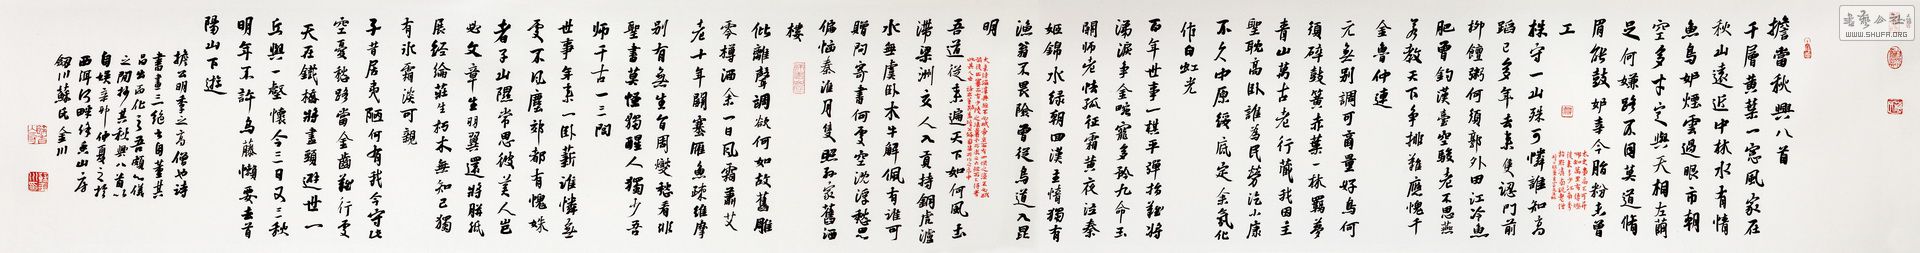 擔當秋興八首
千層黃葉一窓風家在
秋山遠近中林水有情
魚鳥妒煙雲過眼市朝
空多才定與天相左爾
足何嫌路不同莫道脩
眉能鼓妒事今脂粉曾
工
株守一山殊可憐誰知高
蹈已多年去來門前
柳饘粥何須郭外田江冷魚
肥曾釣漢臺空駿老不思燕
若教天下爭排難應愧千
金魯仲連
元無別調可商量好鳥何
須碎鼓簧赤葉一林羈夢
青山萬古老行藏我因主
聖耽高臥誰為民勞泣小康
不久中原終底定余氣化
作白虹光
百年世事一棋枰彈指難將
涕淚爭金寵多矜九命玉
關師老怯孤征霜黃夜泣秦
姬錦水綠朝回漢主情獨有
漁翁不畏險曾從鳥道入昆
明
吾道從來遍天下如何風去
滯梁洲文人入貢持銅虎瀘
水無虞臥木牛解佩有誰可
贈問寄書何處空沈浮愁思
偏恼秦淮月隻照孫家舊酒
樓
仳離聲調欲何如故舊雕
零樽酒余一日風霜蕭艾
老十年關塞雁魚疎維摩
別有無生旨周燮愁看非
聖書莫怪獨醒人獨少吾
師千古一三閭
世事年來一臥薪誰憐無
處不風塵郊都有愧姝
者子山隈常思彼美人豈
必文章生羽翼還將紙
展經綸莊生朽木無知己獨
有冰霜淡可親
子昔居夷陋何有我今守此
空憂愁路當金齒難行處
天在鐵橋將盡頭避世一
丘與一壑懷今三日又三秋
明年不許烏藤懶要去首
陽山下遊
擔公明季之高僧也詩
書畫三絕古自董其
昌出而化之吾頗心儀
之間抄其秋興八首以
自娛辛卯仲夏之於
西洱河畔綠魚山房
劍川蘇氏金川
書藝公社
WWW.SHUFA.ORG